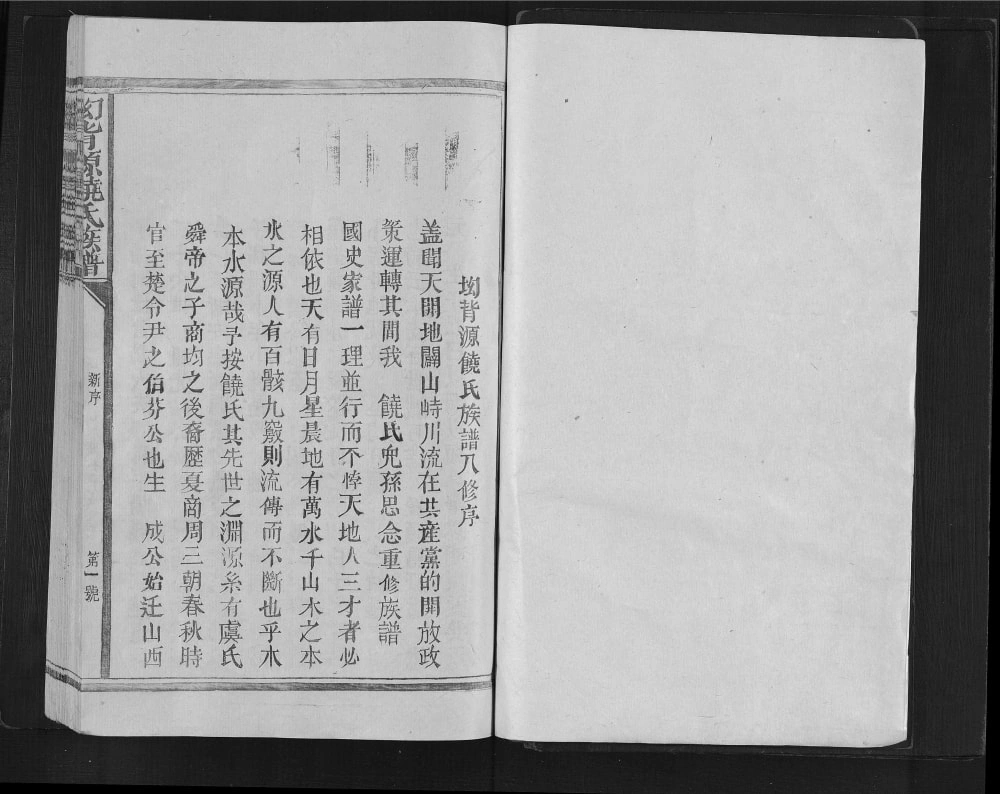 坳背源饒氏族譜八修序
蓋聞天開地闢山峙川流在共産黨的開放政
策運轉其間我　饒氏兒孫思念重修族譜
國史家譜一理並行而不悖天地人三才者必
相依也天有日月星晨地有萬水千山木之本
水之源人有百骸九竅則流傳而不斷也乎木
本水源哉予按饒氏其先世之淵源系有虞氏
舜帝之子商均之後裔歷夏商周三朝春秋時
官至楚令尹之伯芬公也生　成公始迁山西
坳背源饒氏族譜
新序
第一號